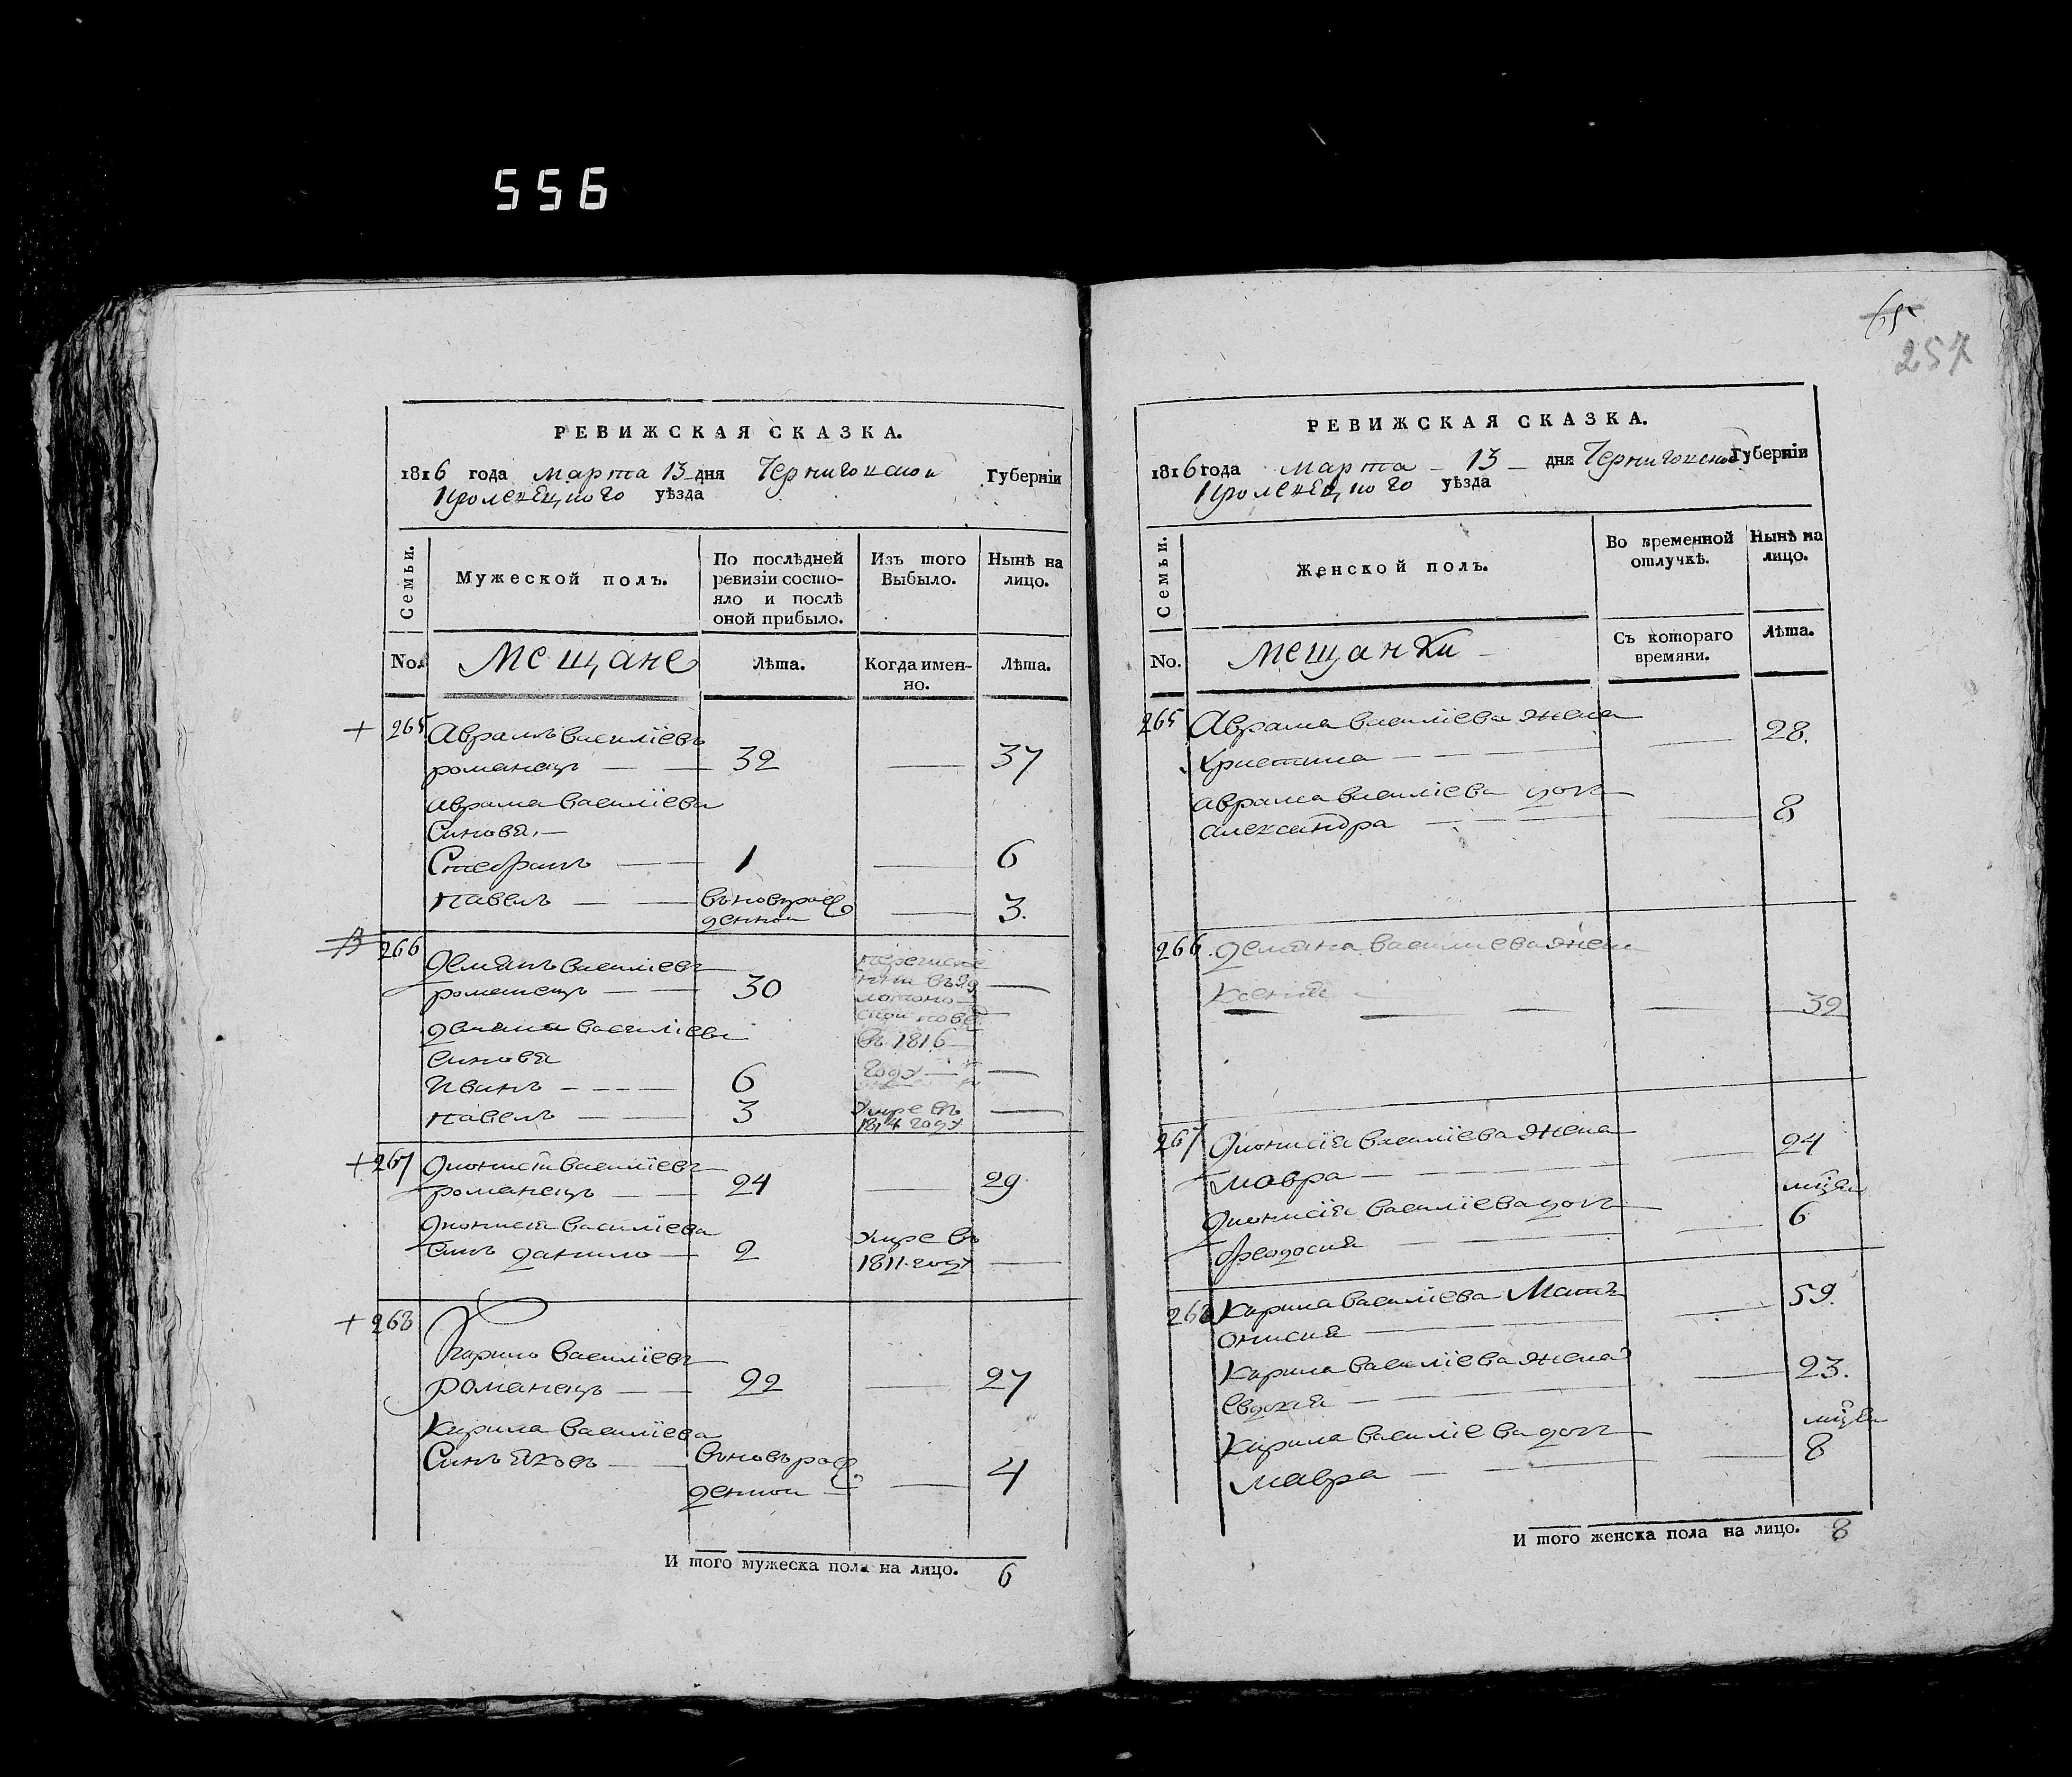 556
РЕВИЖСКАЯ СКАЗКА.
1816 года марта 13 дня Губерніи
уѣзда
Семьи.
Мужеской полъ.
По послѣдней ревизіи состо-
яло и послѣ
оной прибыло.
Изъ того
Выбыло.
Нынѣ на
лицо.
No.
Мещане
Лѣта.
Когда имен-
но.
Лѣта.
+ 265 Аврамъ василіевъ
романецъ 32 37
аврама василіева
Синовя
Стефанъ 1 6
павелъ въновърож
денной 3.
266 Демянъ василіевъ
романецъ 30
демяна василіева
синовя
Иванъ 6
въ 1816
году
павелъ 3 умре въ
1814 году
+ 267 Дионисій василіевъ
романецъ 24 29
Дионисія василіева
синъ данило 2 умре въ
1811 году
+ 268 Кирило василіевъ
романецъ 22 27
Кирила василіева
Синъ яковъ въновърож
денной 4
И того мужеска пола на лицо. 6
65
257
РЕВИЖСКАЯ СКАЗКА.
1816 года марта 13 дня Губерніи
уѣзда
Семьи.
Женской полъ.
Во временной
отлучкѣ.
Нынѣ на
лицо.
No.
мещанки
Съ котораго
времяни.
Лѣта.
265 Аврама василіева жена
Христина 28.
аврама василіева дочь
александра 8
266 демяна василиева жена
Ксения 32
267 Дионисія василіева жена
мавра 24
Дионисія василіева дочь
феодосия 6
268 Кирила василіева Мать
онисия 59.
Кирила василіева жена
евдокия 23.
Кирила василіева дочь
мавра 8
И того женска пола на лицо. 8